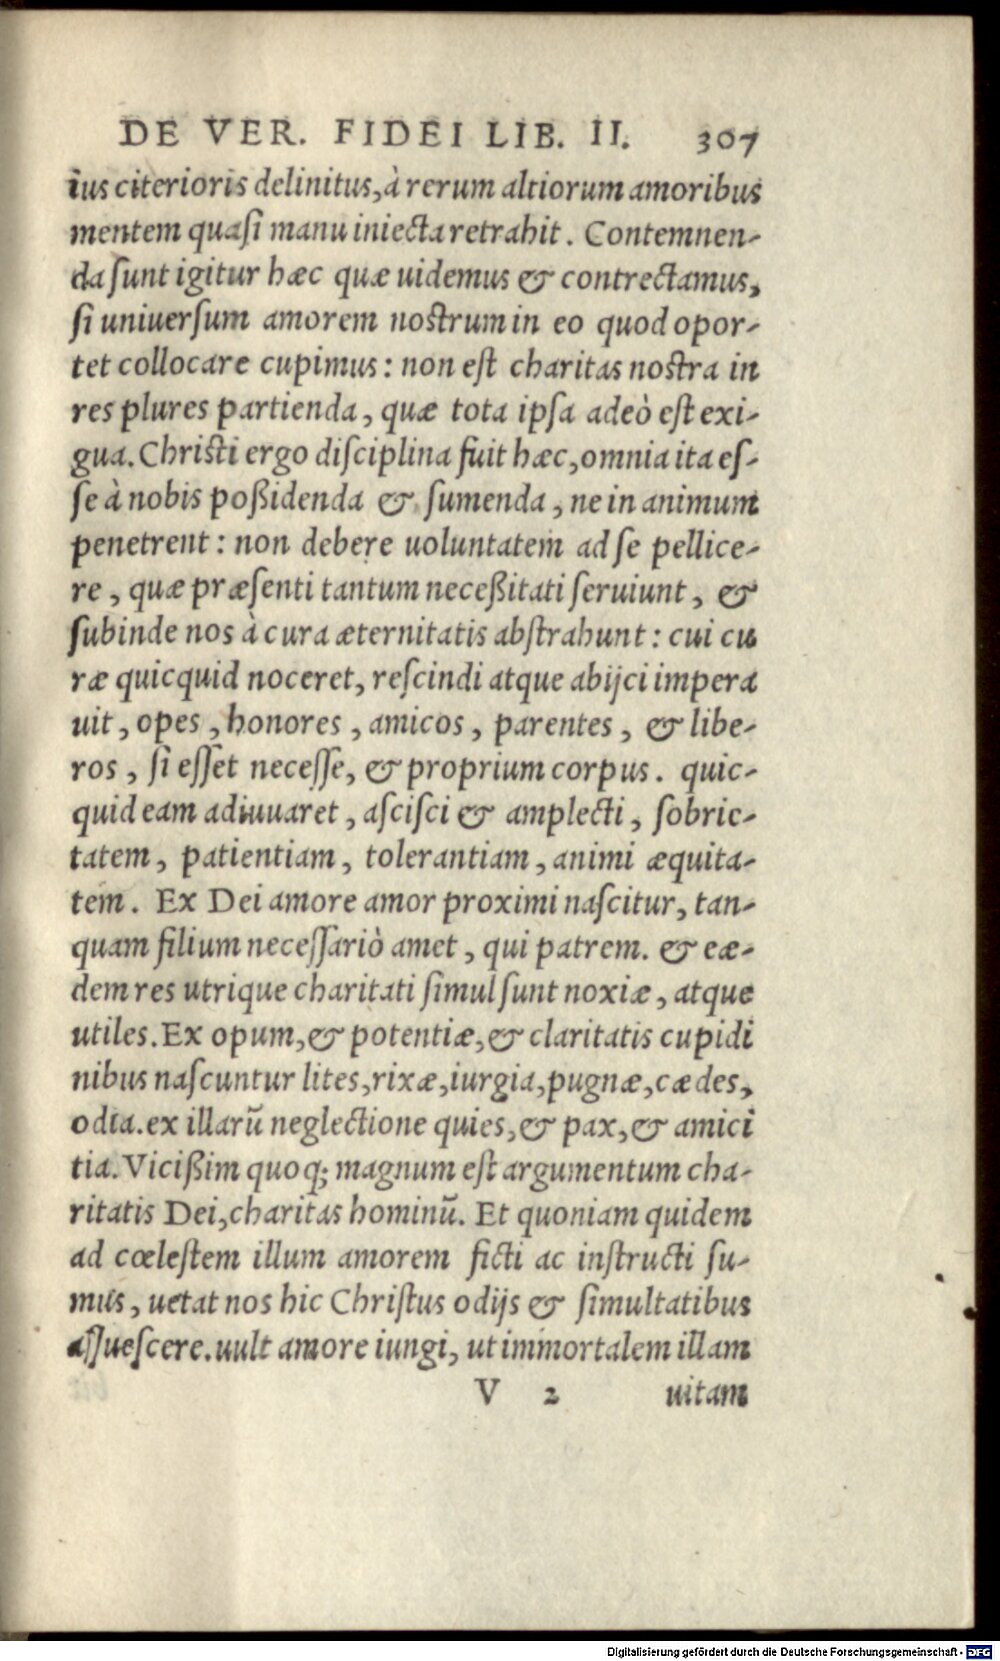 DE VER. FIDEI LIB. II. 307
ius citerioris delinitus, à rerum altiorum amoribus
mentem quasi manu iniecta retrahit. Contemnen-
da sunt igitur hæc quæ uidemus & contrectamus,
si uniuersum amorem nostrum in eo quod opor-
tet collocare cupimus: non est charitas nostra in
res plures partienda, quæ tota ipsa adeò est exi-
gua. Christi ergo disciplina fuit hæc, omnia ita es-
se à nobis poßidenda & sumenda, ne in animum
penetrent: non debere uoluntatem ad se pellice-
re, quæ præsenti tantum neceßitati seruiunt, &
subinde nos à cura æternitatis abstrahunt: cui cu
ræ quicquid noceret, rescindi atque abijci impera
uit, opes, honores, amicos, parentes, & libe-
ros, si esset necesse, & proprium corpus. quic-
quid eam adiuuaret, ascisci & amplecti, sobrie-
tatem, patientiam, tolerantiam, animi æquita-
tem. Ex Dei amore amor proximi nascitur, tan-
quam filium necessariò amet, qui patrem. & eæ-
dem res utrique charitati simul sunt noxiæ, atque
utiles. Ex opum, & potentiæ, & claritatis cupidi
nibus nascuntur lites, rixæ, iurgia, pugnæ, cædes,
odia. ex illarū neglectione quies, & pax, & amici
tia. Vicißim quoq; magnum est argumentum cha-
ritatis Dei, charitas hominū. Et quoniam quidem
ad cœlestem illum amorem ficti ac instructi su-
mus, uetat nos hic Christus odijs & simultatibus
assuescere. uult amore iungi, ut immortalem illam
V 2 uitam
Digitalisierung gefördert durch die Deutsche Forschungsgemeinschaft - DFG